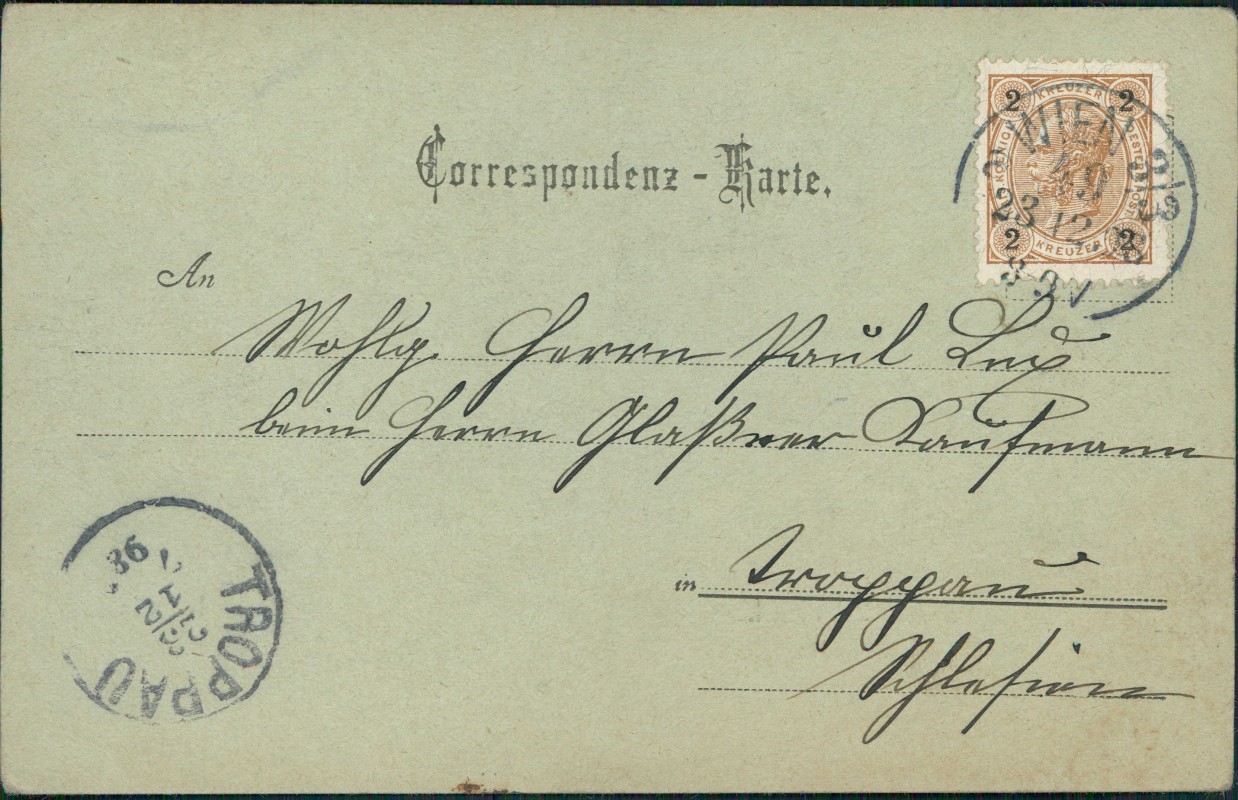 Correspondenz-Karte.
2 KREUZER 2
2 KREUZER 2
WIEN
49
23 12
An
Wohlg. Herrn Paul Lux
beim Herrn Glaßner Kaufmann
in Troppau
Schlesien
TROPPAU